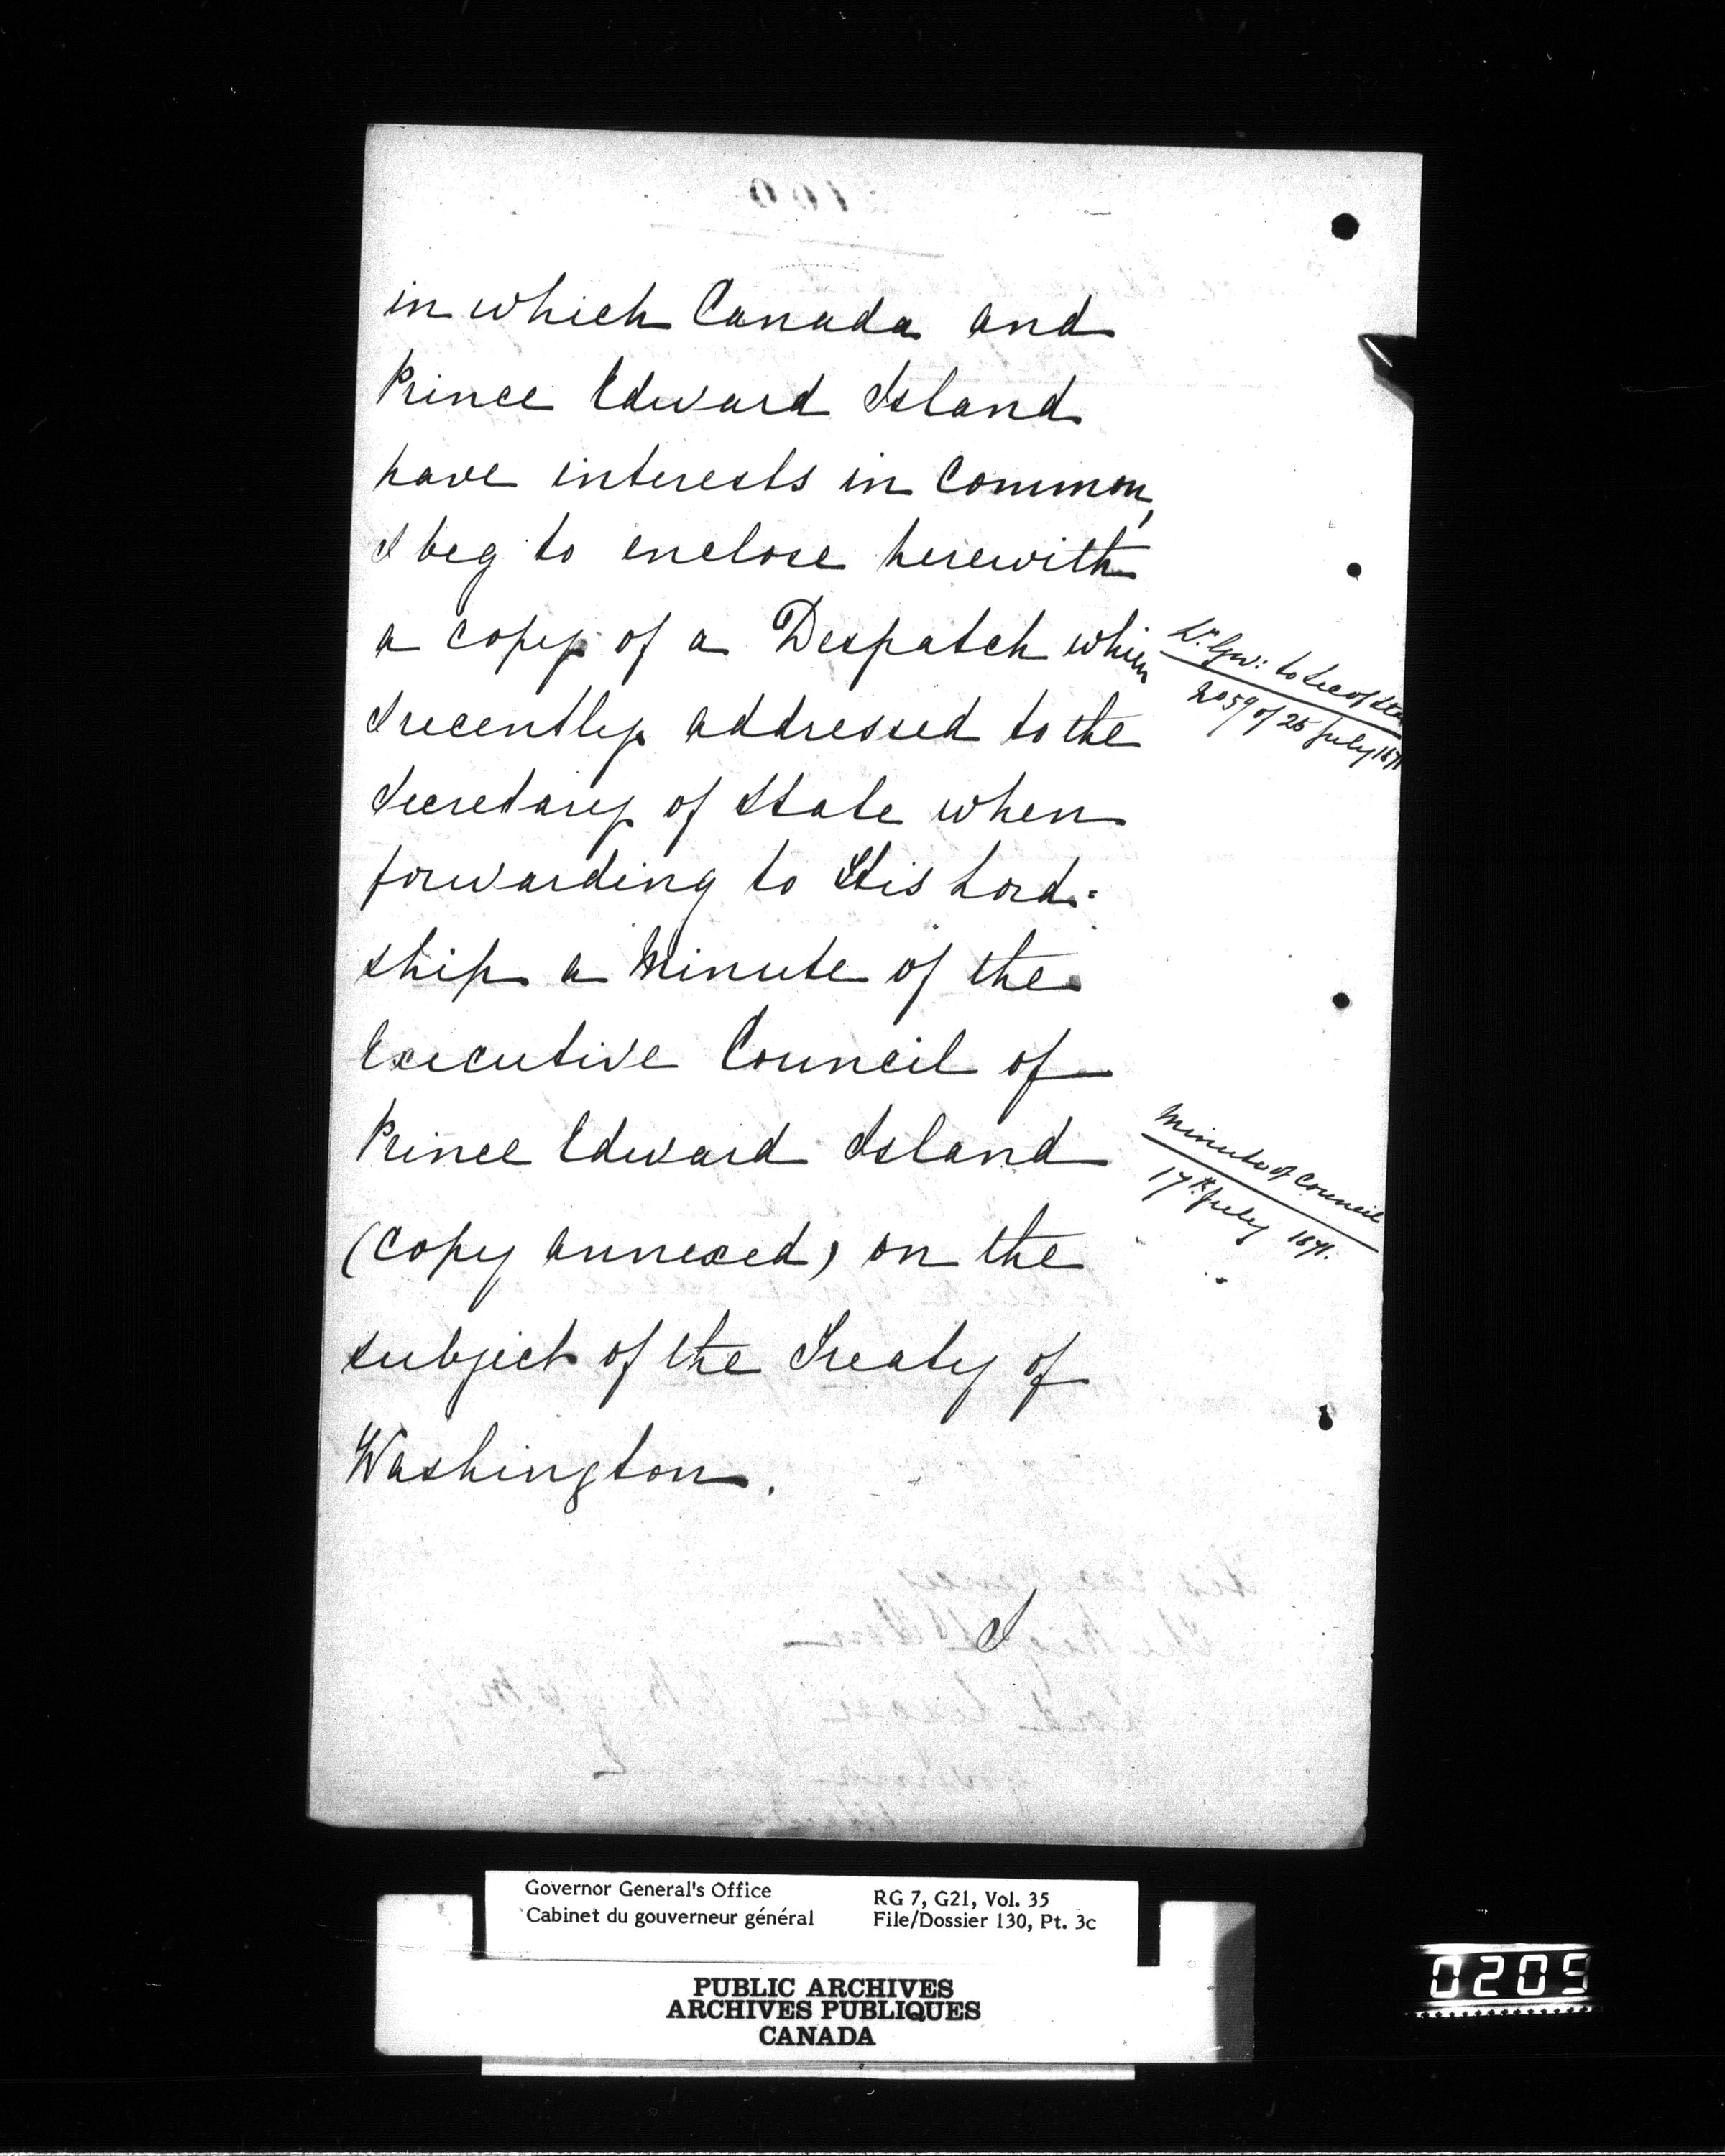 in which Canada and
Prince Edward Island
have interests in Common,
I beg to enclose herewith
a copy of a Despatch which
I recently addressed to the
Secretary of State when
forwarding to His Lord=
ship a Minute of the
Executive Council of
Prince Edward Island
(copy annexed) on the
subject of the Treaty of
Washington.
I
Lt. Gov: to Sec of Sta
No 59 of 25 July 1871
Minute of Council
17th July 1871.
Governor General's Office
Cabinet du gouverneur général
RG 7, G21, Vol. 35
File/Dossier 130, Pt. 3c
PUBLIC ARCHIVES
ARCHIVES PUBLIQUES
CANADA
0209